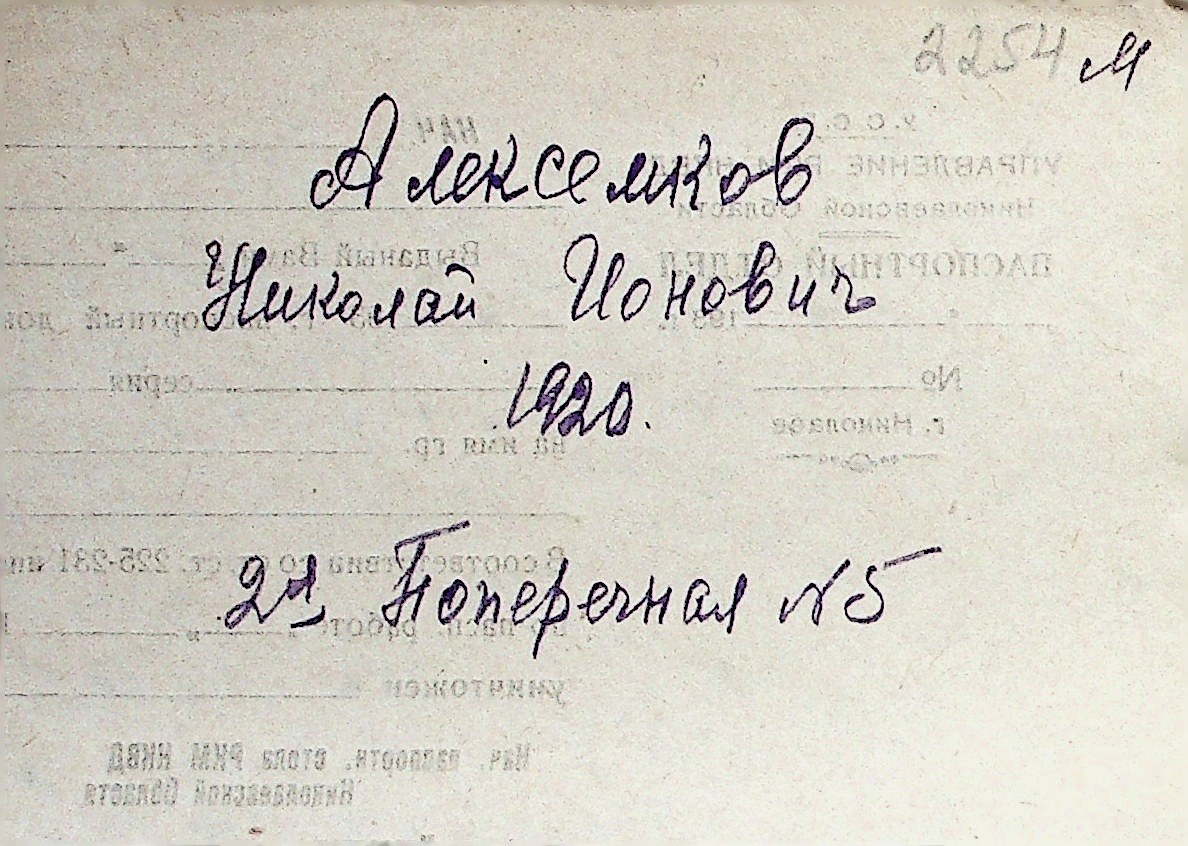 2254 м
Алексемков
Николай Ионович
1920.
2я Поперечная N5
У.С.С.
УПРАВЛЕНИЕ
Николаевской Области
ПАСПОРТНЫЙ ОТДЕЛ
193 г.
№
г. Николаев
НАЧ.
Выданый Вами "
г. паспортный док
серия
на имя гр.
В соответствиа со ст. ст. 225-231 ин
по пасп. работе "
уничтожен
Нач. паспортн. стола РКМ НКВД
Николаевской Области